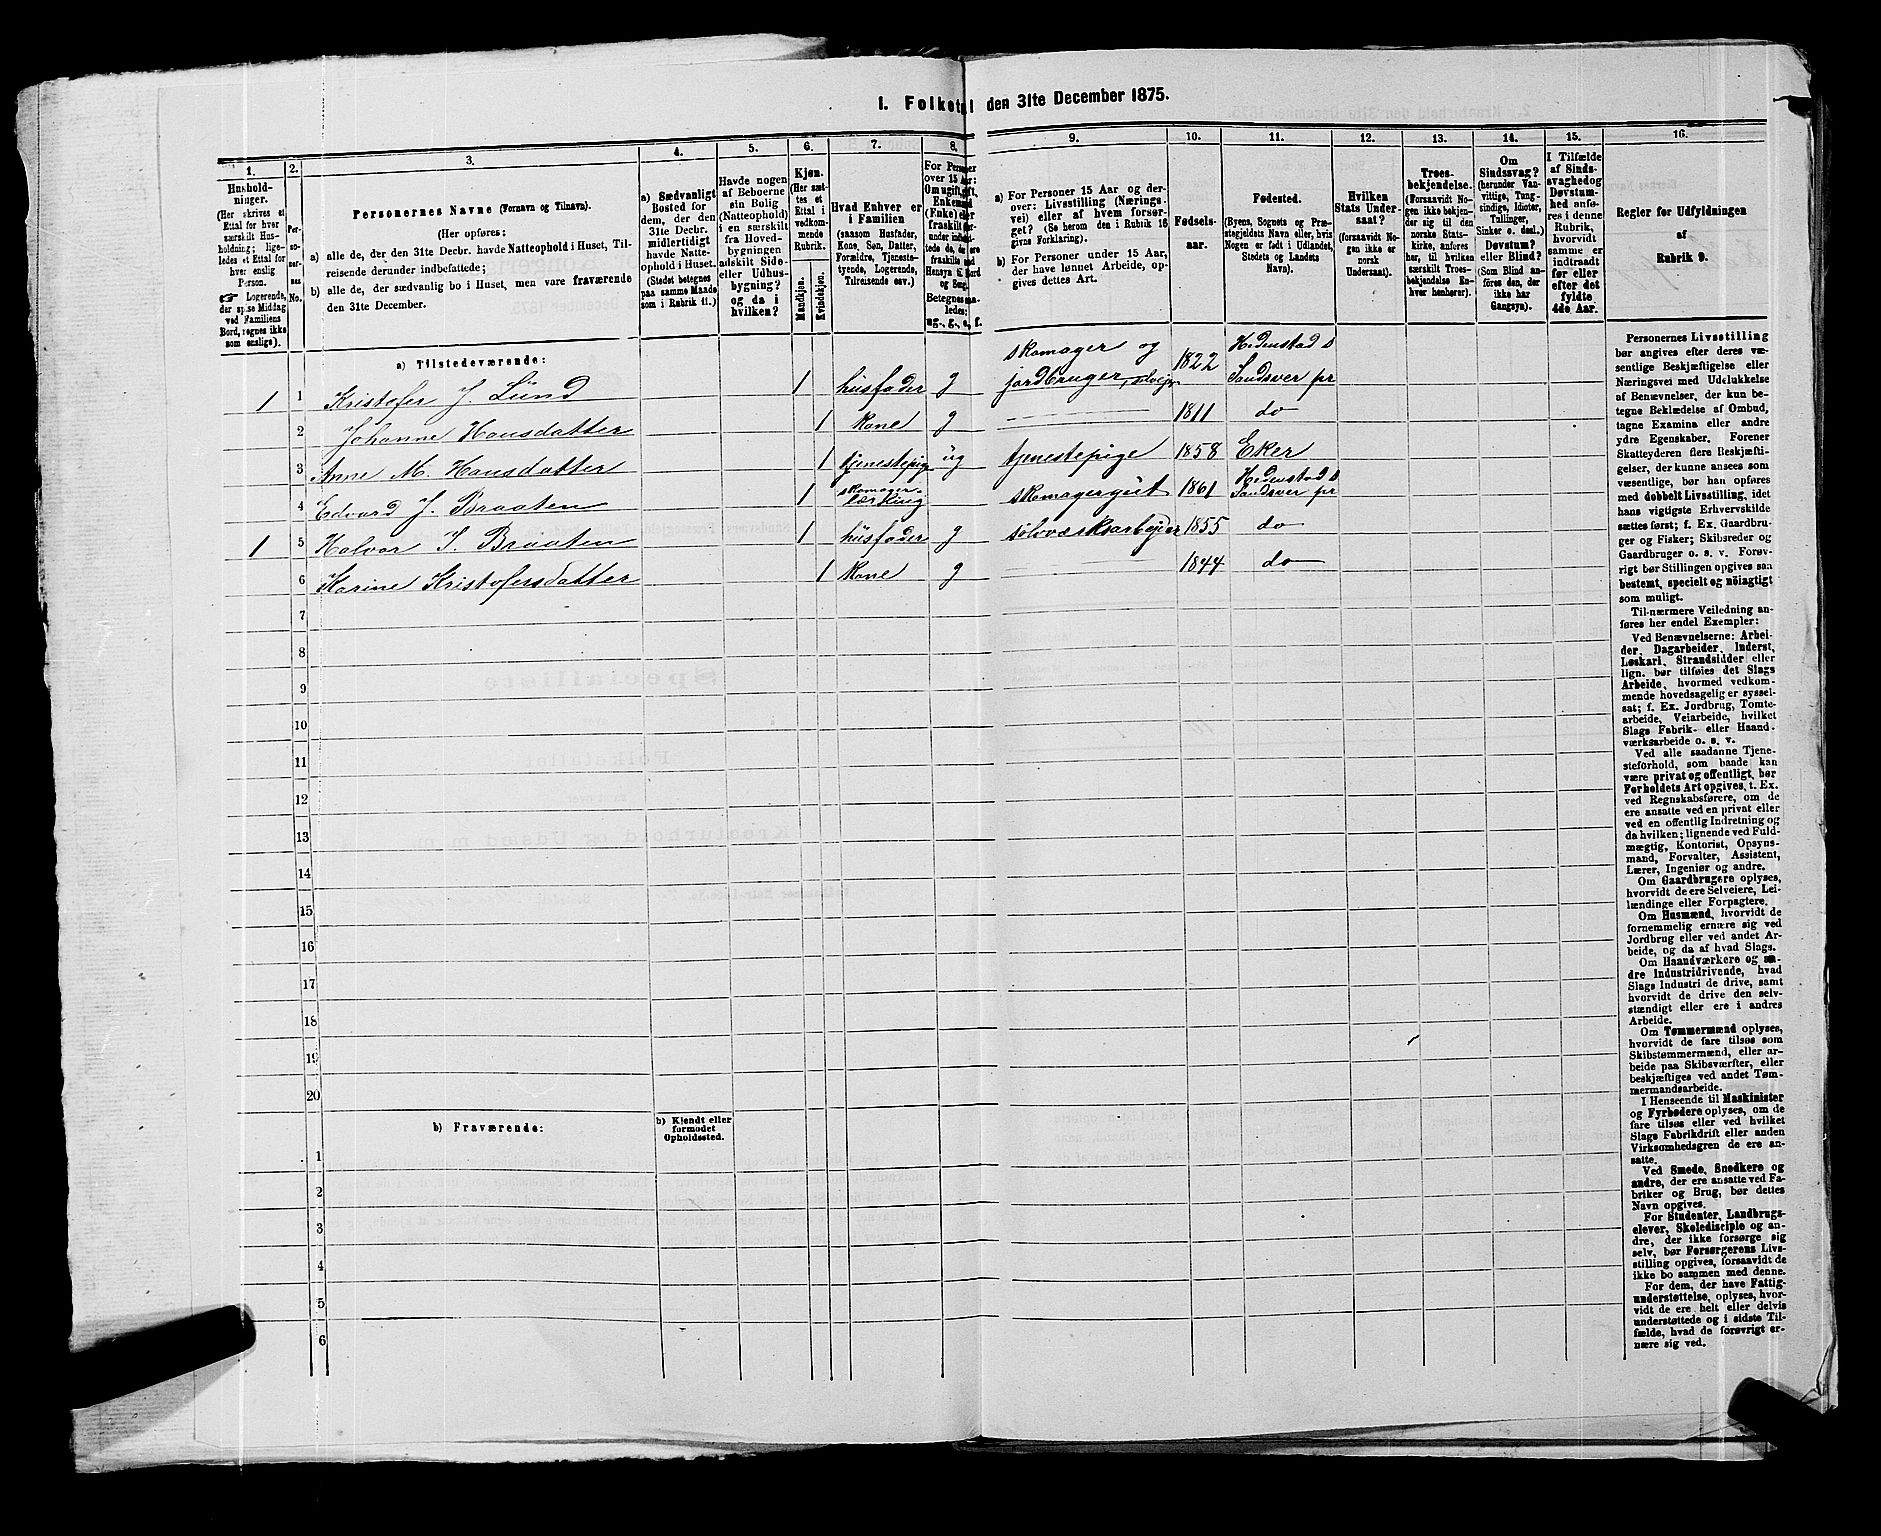 1. Folketal den 31te December 1875.
1.
Hushold-
ninger.
(Her skrives et
Ettal for hver
særskilt Hus-
holdning; lige-
ledes et Ettal for
hver enslig
Person.
☞ Logerende,
der spise Middag
ved Familiens
Bord, regnes ikke
som enslige).
2.
Per-
so-
ner-
nes
No.
3.
Personernes Navne (Fornavn og Tilnavn).
(Her opføres:
a) alle de, der den 31te Decbr. havde Natteophold i Huset, Til-
reisende derunder indbefattede;
b) alle de, der sædvanlig bo i Huset, men vare fraværende
den 31te December.
4.
a) Sædvanligt
Bosted for
dem, der den
31te Decbr.
midlertidigt
havde Natte-
ophold i Huset.
(Stedet betegnes
paa samme Maade
som i Rubrik 11.)
5.
Havde nogen
af Beboerne
sin Bolig
(Natteophold)
i en særskilt
fra Hoved-
bygningen
adskilt Side-
eller Udhus-
bygning?
og da i
hvilken?
6.
Kjøn.
(Her sæt-
tes et
Ettal i
vedkom-
mende
Rubrik.
Mandkjøn.
Kvindekjøn.
7.
Hvad Enhver er
i Familien
(saasom Husfader,
Kone, Søn, Datter,
Forældre, Tjeneste-
tyende, Logerende,
Tilreisende osv.)
8.
For Personer
over 15 Aar:
Om ugift, gift,
Enkemand
(Enke) eller
fraskilt
Betegnes saa-
ledes:
ug., g., e, f.
9.
a) For Personer 15 Aar og der-
over: Livsstilling (Nærings-
vei) eller af hvem forsør-
get? (Se herom den i Rubrik 16
givne Forklaring).
b) For Personer under 15 Aar,
der have lønnet Arbeide, op-
gives dettes Art.
10.
Fødsels-
aar.
11.
Fødested.
(Byens, Sognets og Præ-
stegjeldets Navn eller, hvis
Nogen er født i Udlandet,
Stedets og Landets
Navn).
12.
Hvilken
Stats Under-
saat?
(forsaavidt No-
gen ikke er
norsk
Undersaat).
13.
Troes-
bekjendelse.
(Forsaavidt No-
gen ikke bekjen-
der sig til den
norske Stats-
kirke, anføres
her, til hvilken
særskilt Troes-
bekjendelse En-
hver henhører).
14.
Om
Sindssvag?
(herunder Van-
vittige, Tung-
sindige, Idioter,
Tullinger,
Sinker o. desl.).
Døvstum?
eller Blind?
(Som Blind an-
føres den, der
ikke har
Gangsyn).
15.
I Tilfælde
af Sinds-
svaghed og
Døvstum-
hed anfø-
res i denne
Rubrik,
hvorvidt
samme er
indtraadt
før eller
efter det
fyldte
4de Aar.
16.
Regler for Udfyldningen
af
Rubrik 9.
a) Tilstedeværende:
1 1 Kristofer J. Lund 1 husfader g skomager og jordbruger, selvejer 1822 Hedenstad s Sandsver pr
2 Johanne Hansdatter 1 kone g — 1811 do
3 Anne M. Hansdatter 1 tjenestepige ug tjenestepige 1858 Eker
4 Edvard J. Braaten 1 skomager-lærling skomagergut 1861 Hedenstad s Sandsver pr
1 5 Halvor J. Braaten 1 husfader g sølvværksarbejder 1855 do
6 Karine Kristofersdatter 1 kone g — 1844 do
7
8
9
10
11
12
13
14
15
16
17
18
19
20
b) Fraværende:
b) Kjendt eller
formodet
Opholdssted.
1
2
3
4
5
6
Personernes Livsstilling
bør angives efter deres væ-
sentlige Beskjæftigelse eller
Næringsvei med Udelukkelse
af Benævnelser, der kun be-
tegne Beklædelse af Ombud,
tagne Examina eller andre
ydre Egenskaber. Forener
Skatteyderen flere Beskjæfti-
gelser, der kunne ansees som
væsentlige, bør han opføres
med dobbelt Livsstilling, idet
hans vigtigste Erhvervskilde
sættes først; f. Ex. Gaardbru-
ger og Fisker; Skibsreder og
Gaardbruger o. s. v. Forøv-
rigt bør Stillingen opgives saa
bestemt, specielt og nöiagtigt
som muligt.
Til nærmere Veiledning an-
føres her endel Exempler:
Ved Benævnelserne: Arbei-
der, Dagarbeider, Inderst,
Løskari, Strandsidder eller
lign. bør tilføies det Slags
Arbeide, hvormed vedkom-
mende hovedsagelig er syssel-
sat; f. Ex. Jordbrug, Tomte-
arbeide, Veiarbeide, hvilket
Slags Fabrik- eller Haand-
værksarbeide o. s. v.
Ved alle saadanne Tjene-
steforhold, som baade kan
være privat og offentligt, bør
Forholdets Art opgives, t. Ex.
ved Regnskabsførere, om de
ere ansatte ved en privat eller
ved en offentlig Indretning og
da hvilken; lignende ved Fuld-
mægtig, Kontorist, Opsyns-
mand, Forvalter, Assistent,
Lærer, Ingeniør og andre.
Om Gaardbrugere oplyses,
hvorvidt de ere Selveiere, Lei-
lændinge eller Forpagtere.
Om Husmænd, hvorvidt de
fornemmelig ernære sig ved
Jordbrug eller ved andet Ar-
beide, og da af hvad Slags.
Om Haandværkere og an-
dre Industridrivende, hvad
Slags Industri de drive, samt
hvorvidt de drive den selv-
stændigt eller ere i andres
Arbeide.
Om Tømmermænd oplyses,
hvorvidt de fare tilsøs som
Skibstømmermænd, eller ar-
beide paa Skibsværfter, eller
beskjæftiges ved andet Tøm-
mermandsarbeide.
I Henseende til Maskinister
og Fyrbødere oplyses, om de
fare tilsøs eller ved hvilket
Slags Fabrikdrift eller anden
Virksomhedsgren de ere an-
satte.
Ved Smede, Snedkere og
andre, der ere ansatte ved Fa-
briker og Brug, bør dettes
Navn opgives.
For Studenter, Landbrugs-
elever, Skoledisciple og an-
dre, der ikke forsørge sig
selv, bør Forsørgerens Livs-
stilling opgives, forsaavidt de
ikke bo sammen med denne.
For dem, der have Fattig-
understøttelse, oplyses, hvor-
vidt de ere helt eller delvis
understøttede og i sidste Til-
fælde, hvad de forøvrigt er-
nære sig ved.